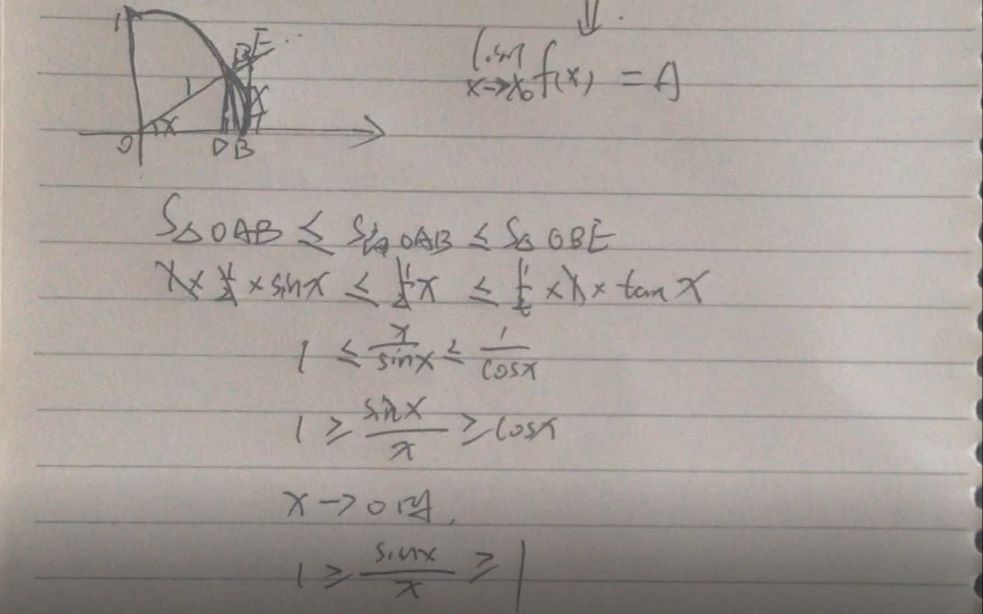 1
B E
1 x
x
O D B
lim f(x) = A
x→x₀
S△OAB ≤ S扇OAB ≤ S△OBE
1 × 1/2 × sinx ≤ 1/2 x ≤ 1/2 × 1 × tan x
1 ≤ x/sinx ≤ 1/cosx
1 ≥ sinx/x ≥ cosx
x→0时,
1 ≥ sinx/x ≥ 1